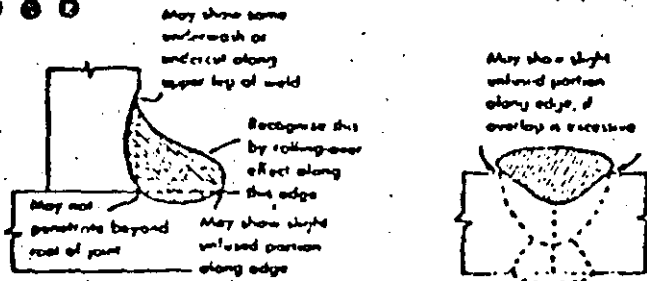 May show some
underwash or
undercut along
upper leg of weld
Recognise this
by rolling-over
effect along
this edge
May not
penetrate beyond
root of joint
May show slight
unfused portion
along edge
May show slight
unfused portion
along edge, if
overlap is excessive